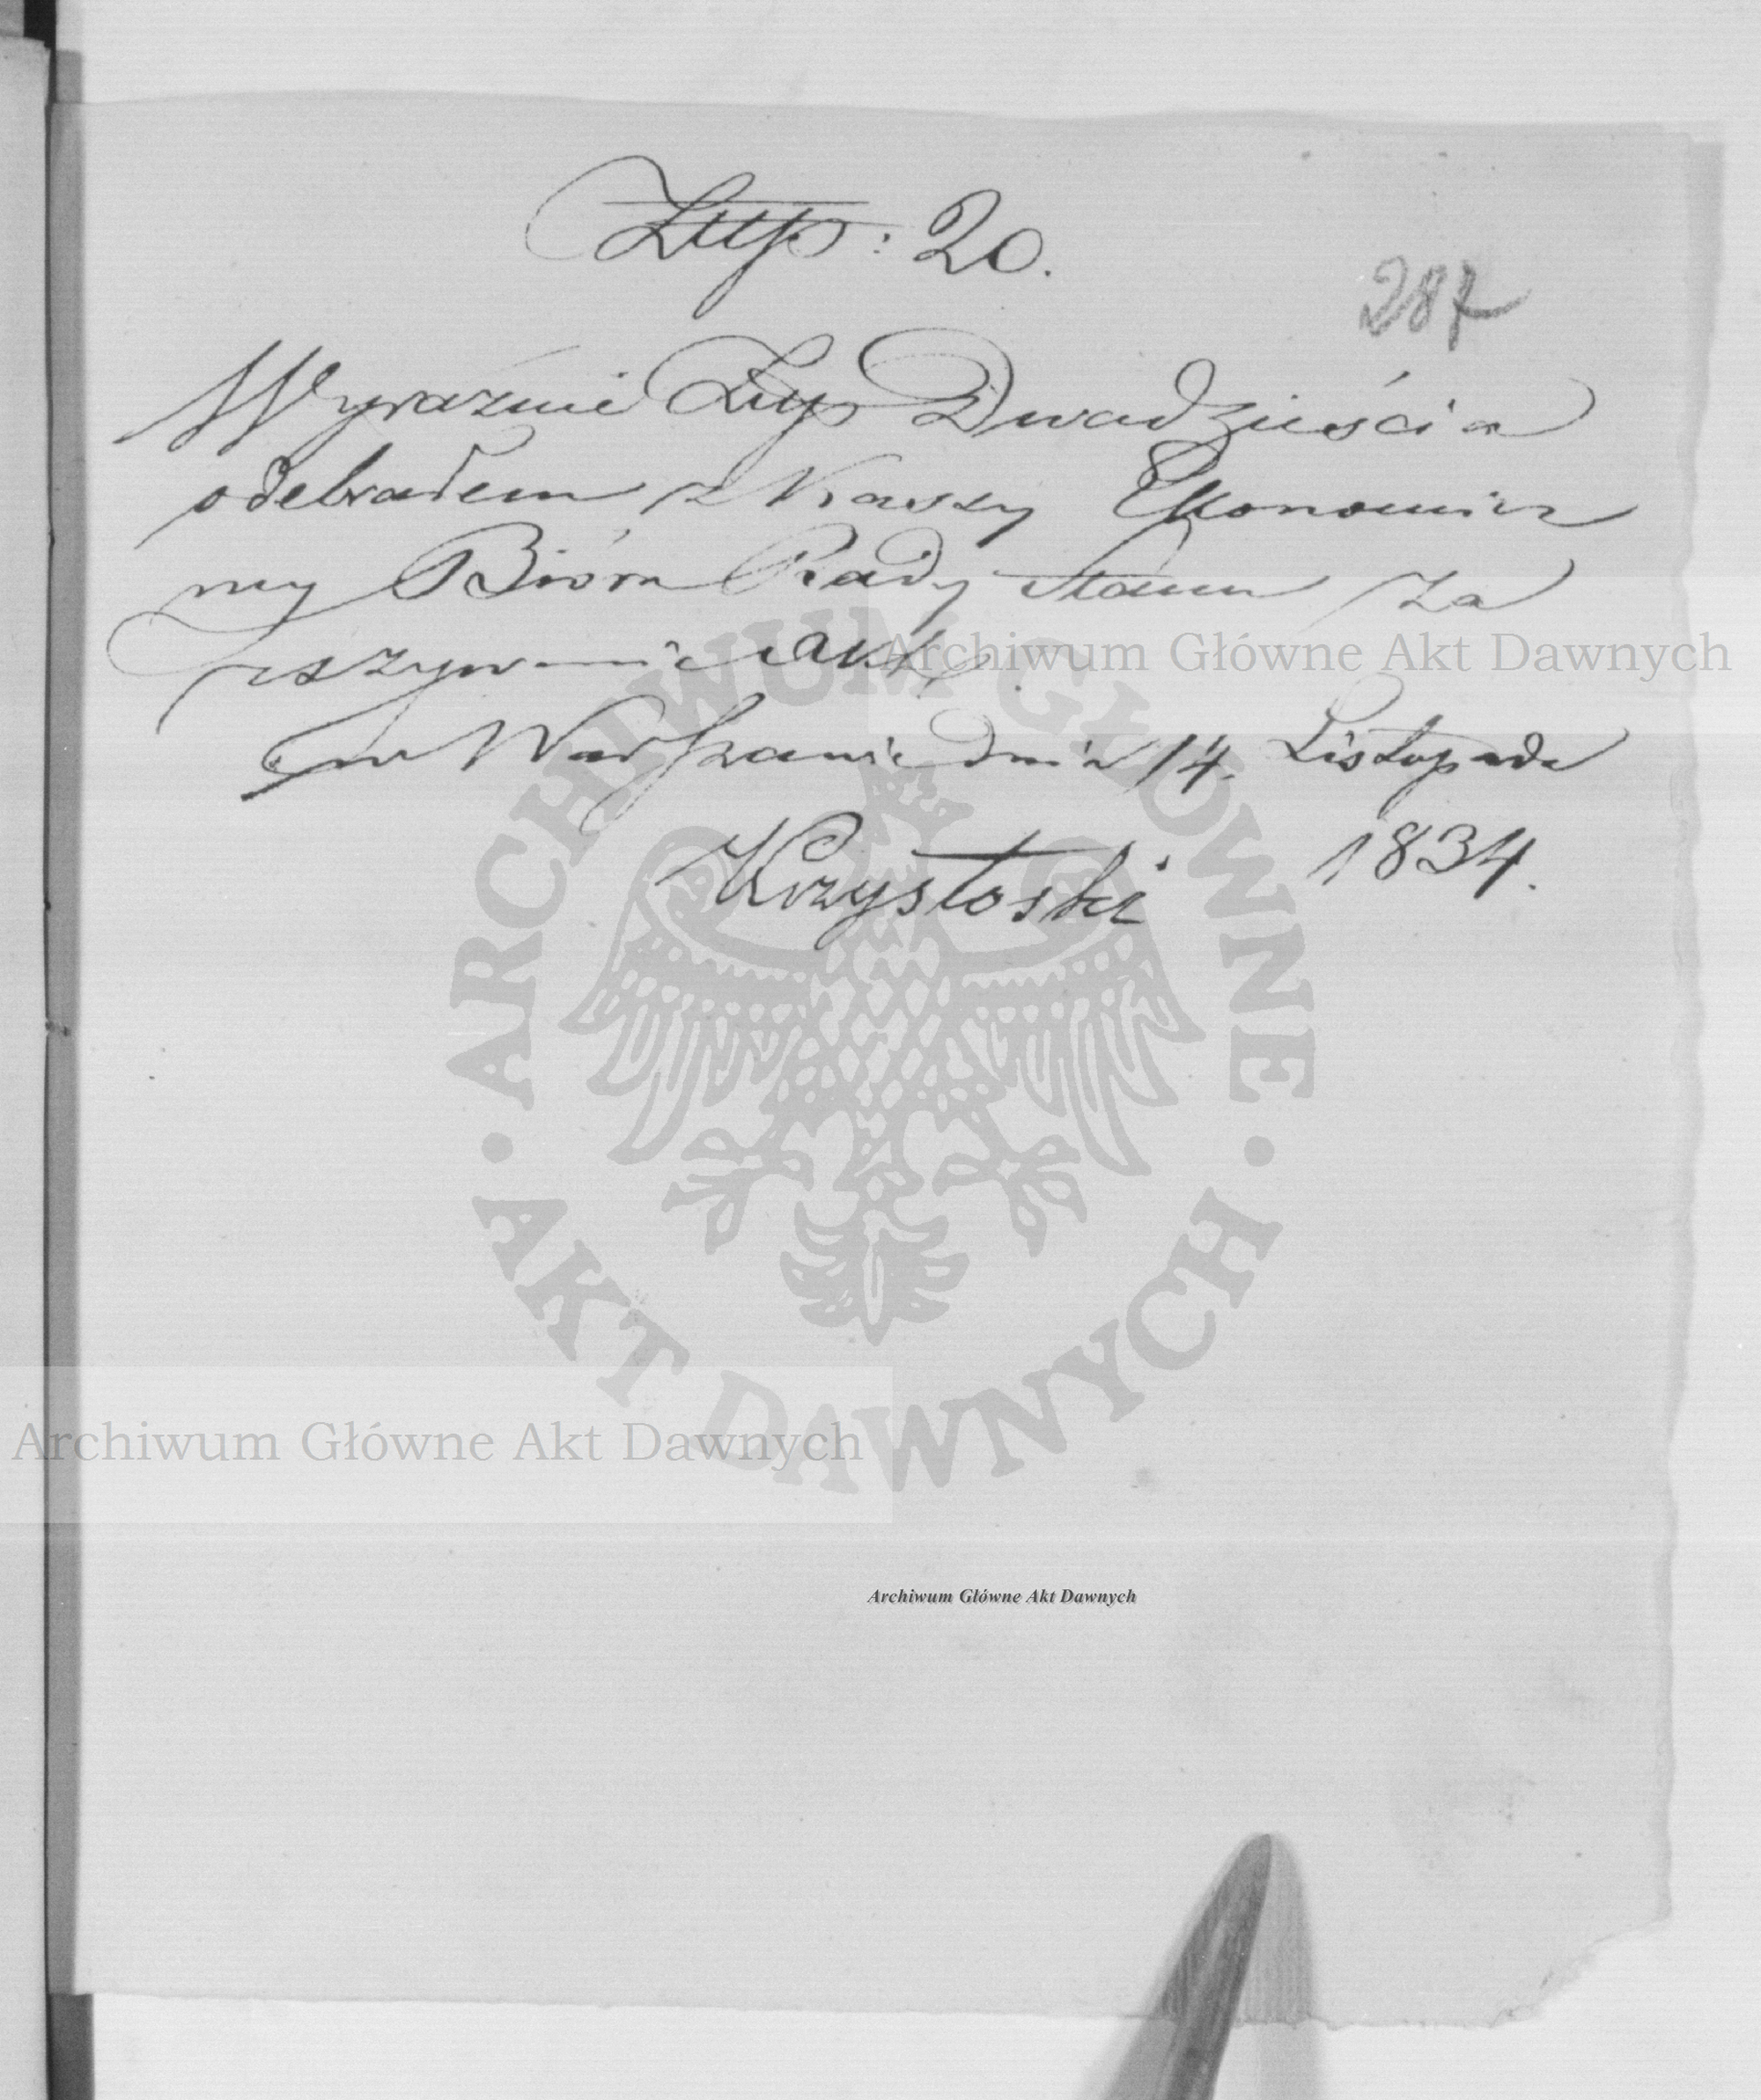 Złlp: 20.
287
Wyraźnie Złp Dwadzieścia
odebrałem z Kassy Ekonomicz
ny Bióra Rady Stanu za
zszywanie akt.
w Warszawie dnia 14. Listopada
1834.
Krzystoski
ARCHIWUM GŁÓWNE
• AKT DAWNYCH •
Archiwum Główne Akt Dawnych
Archiwum Główne Akt Dawnych
Archiwum Główne Akt Dawnych